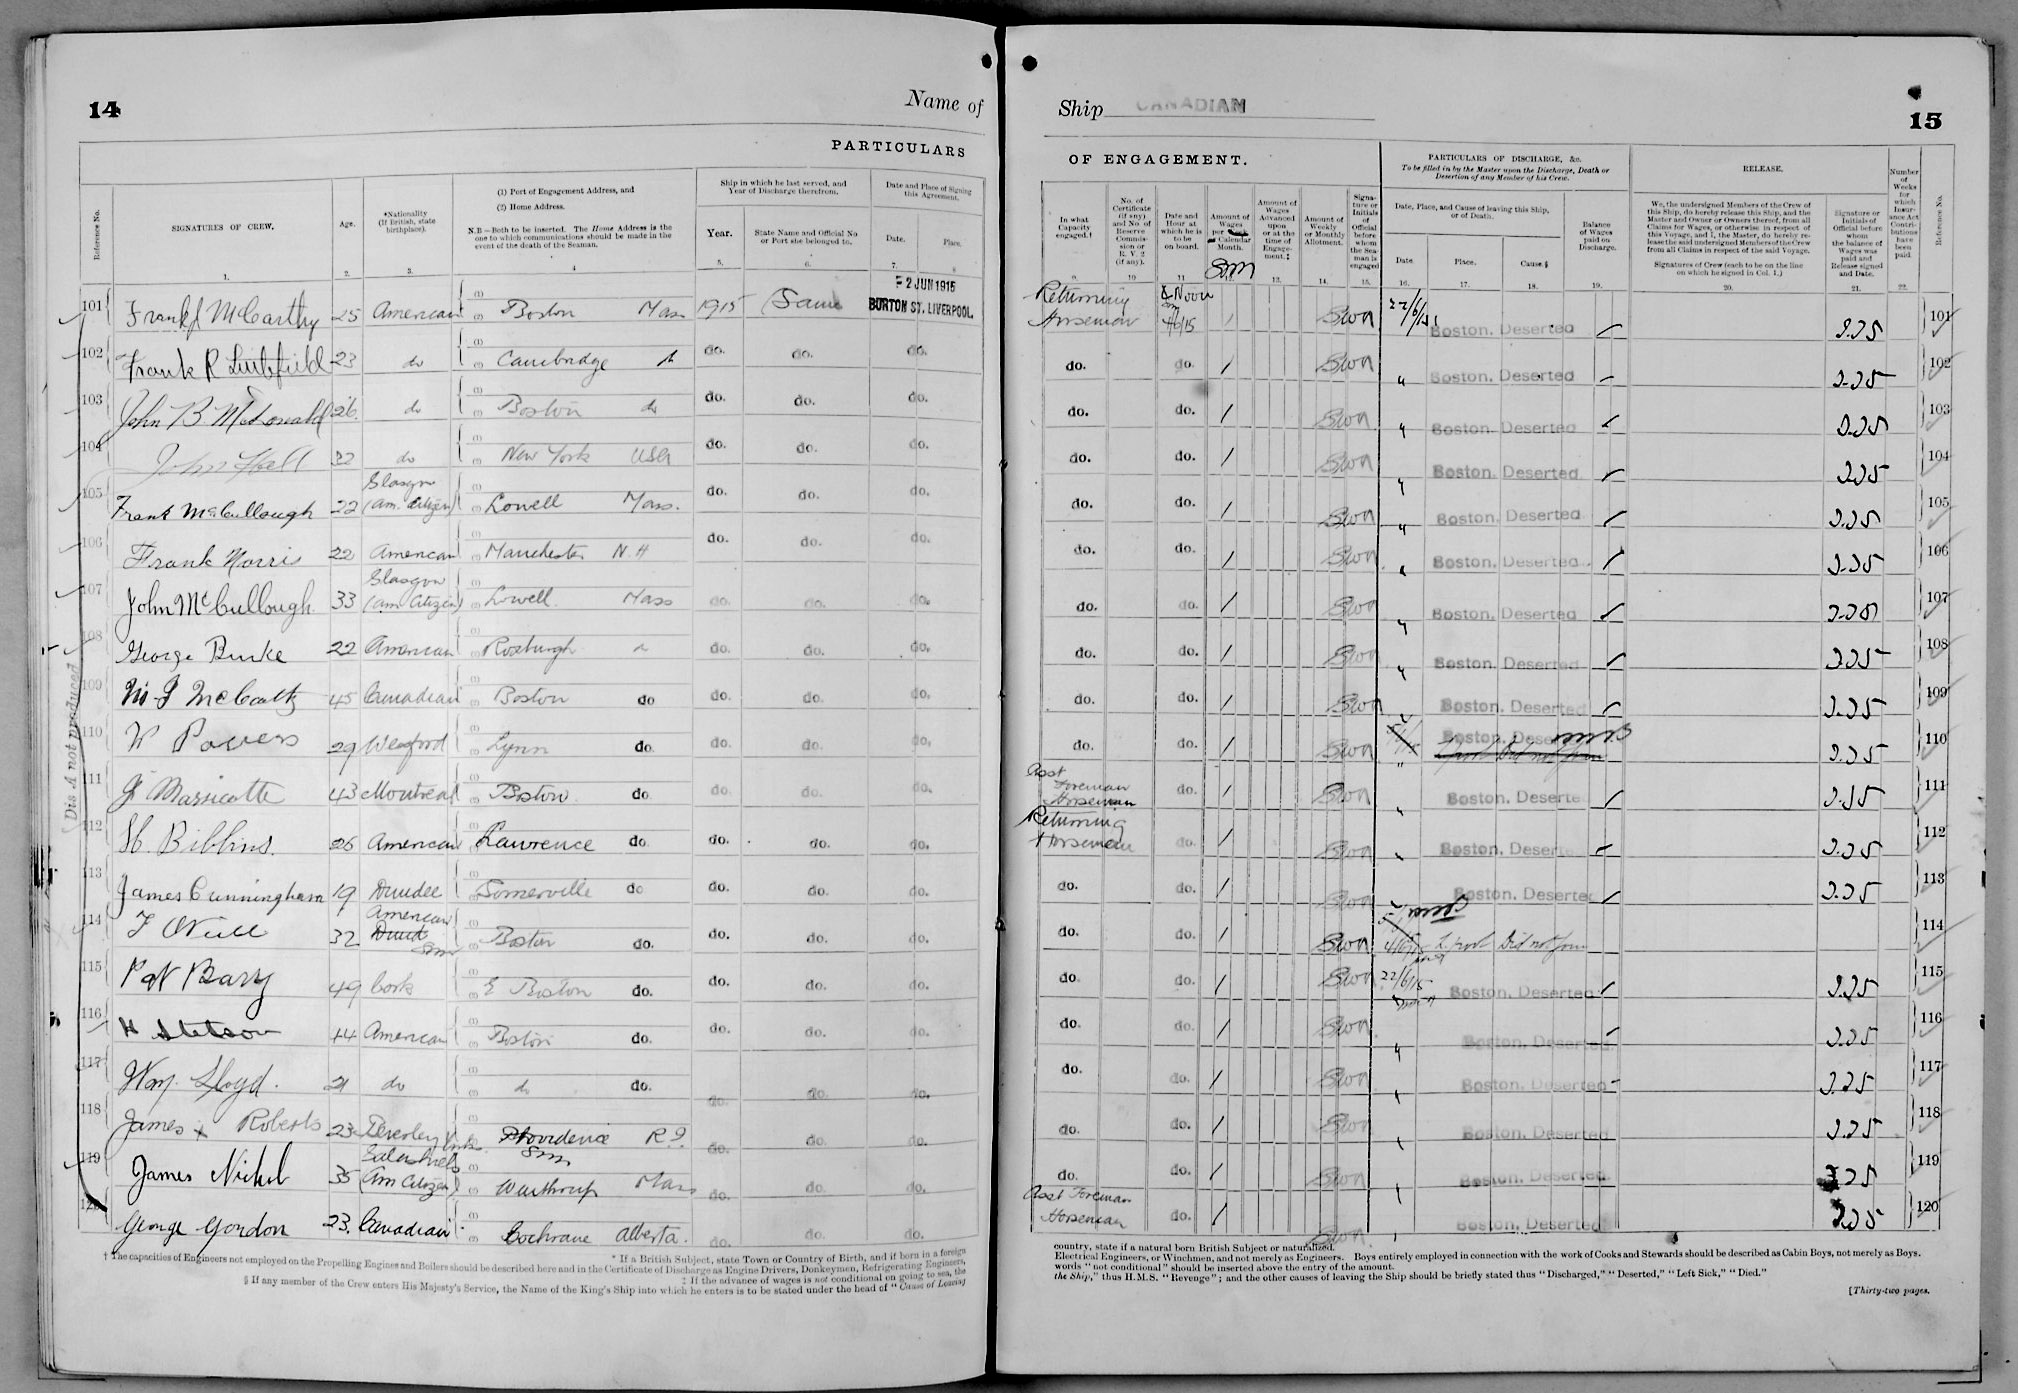 14
Name of
PARTICULARS
Reference No.
SIGNATURES OF CREW.
Age.
*Nationality (If British, state birthplace).
(1) Port of Engagement Address, and
(2) Home Address.
N.B.—Both to be inserted. The Home Address is the one to which communications should be made in the event of the death of the Seaman.
Ship in which he last served, and Year of Discharge therefrom.
Year.
State Name and Official No or Port she belonged to.
Date and Place of Signing this Agreement.
Date.
Place.
1. 2. 3. 4 5. 6. 7. 8
2 JUN 1915
BURTON ST. LIVERPOOL.
101 Frank J McCarthy 25 American Boston Mass 1915 Same
102 Frank R Littlefield 23 do Cambridge do. do. do.
103 John B McDonald 26 do Boston do do. do. do.
104 John Hall 32 do New York USA do. do. do.
105 Frank McCullough 22 Glasgow (Am. Citizen) Lowell Mass. do. do. do.
106 Frank Norris 22 American Manchester N.H do. do. do.
107 John McCullough 33 Glasgow (Am Citizen) Lowell Mass do. do. do.
108 George Burke 22 American Roxburgh do. do. do.
109 45 Canadian Boston do do. do. do.
110 W Powers 29 Wexford Lynn do. do. do. do.
111 J Massicotte 43 Montreal Boston do. do. do. do.
112 H. Bibbins. 26 American Lawrence do do. do. do.
113 James Cunningham 19 Dundee Somerville do do. do. do.
114 32 American Boston do. do. do. do.
115 Pat Barry 49 Cork E Boston do. do. do. do.
116 H Stetson 44 American Boston do. do. do. do.
117 Wm. Lloyd. 21 do do do. do. do. do.
118 James x Roberts 23 Beverley Providence R.I. do. do. do.
119 James Nichol 35 (Am Citizen) Winthrop Mass do. do. do.
120 George Gordon 23. Canadian. Cochrane Alberta. do. do. do.
(Dis A not produced
† The capacities of Engineers not employed on the Propelling Engines and Boilers should be described here and in the Certificate of Discharge as Engine Drivers, Donkeymen, Refrigerating Engineers,
* If a British Subject, state Town or Country of Birth, and if born in a foreign
‡ If the advance of wages is not conditional on going to sea, the
§ If any member of the Crew enters His Majesty's Service, the Name of the King's Ship into which he enters is to be stated under the head of "Cause of Leaving
Ship CANADIAN
15
OF ENGAGEMENT.
In what Capacity engaged.†
No. of Certificate (if any) and No. of Reserve Commission or R. V. 2 (if any).
Date and Hour at which he is to be on board.
Amount of Wages per Calendar Month.
Amount of Wages Advanced upon or at the time of Engagement.‡
Amount of Weekly or Monthly Allotment.
Signature or Initials of Official before whom the Seaman is engaged
PARTICULARS OF DISCHARGE, &c.
To be filled in by the Master upon the Discharge, Death or Desertion of any Member of his Crew.
Date, Place, and Cause of leaving this Ship, or of Death.
Date.
Place.
Cause.§
Balance of Wages paid on Discharge.
RELEASE.
We, the undersigned Members of the Crew of this Ship, do hereby release this Ship, and the Master and Owner or Owners thereof, from all Claims for Wages, or otherwise in respect of this Voyage, and I, the Master, do hereby release the said undersigned Members of the Crew from all Claims in respect of the said Voyage.
Signatures of Crew (each to be on the line on which he signed in Col. 1.)
Signature or Initials of Official before whom the balance of Wages was paid and Release signed and Date.
Number of Weeks for which Insurance Act Contributions have been paid.
Reference No.
9. 10 11 13. 14. 15. 16. 17. 18. 19. 20. 21. 22.
Returning Horseman Noon 4/6/15 / 22/6/15 Boston. Deserted 101
do. do. / " Boston. Deserted 102
do. do. / " Boston. Deserted 103
do. do. / " Boston. Deserted 104
do. do. / " Boston. Deserted 105
do. do. / " Boston. Deserted 106
do. do. / " Boston. Deserted 107
do. do. / " Boston. Deserted 108
do. do. / " Boston. Deserted 109
do. do. / " Boston. 110
Asst Foreman Horseman do. / " Boston. Deserted 111
Returning Horseman do. / " Boston. Deserted 112
do. do. / Boston. Deserted 113
do. do. / 4/6/15 L'pool Did not join 114
do. do. / 22/6/15 Boston. Deserted 115
do. do. / " Boston. Deserted 116
do. do. / " Boston. Deserted 117
do. do. / " Boston. Deserted 118
do. do. / " Boston. Deserted 119
Asst Foreman Horseman do. / " Boston. Deserted 120
country, state if a natural born British Subject or naturalized.
Electrical Engineers, or Winchmen, and not merely as Engineers. Boys entirely employed in connection with the work of Cooks and Stewards should be described as Cabin Boys, not merely as Boys.
words "not conditional" should be inserted above the entry of the amount.
the Ship," thus H.M.S. "Revenge"; and the other causes of leaving the Ship should be briefly stated thus "Discharged," "Deserted," "Left Sick," "Died."
[Thirty-two pages.